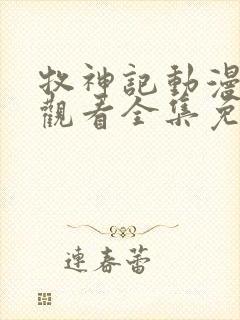 牧神記動漫
觀看全集免
連春蕾